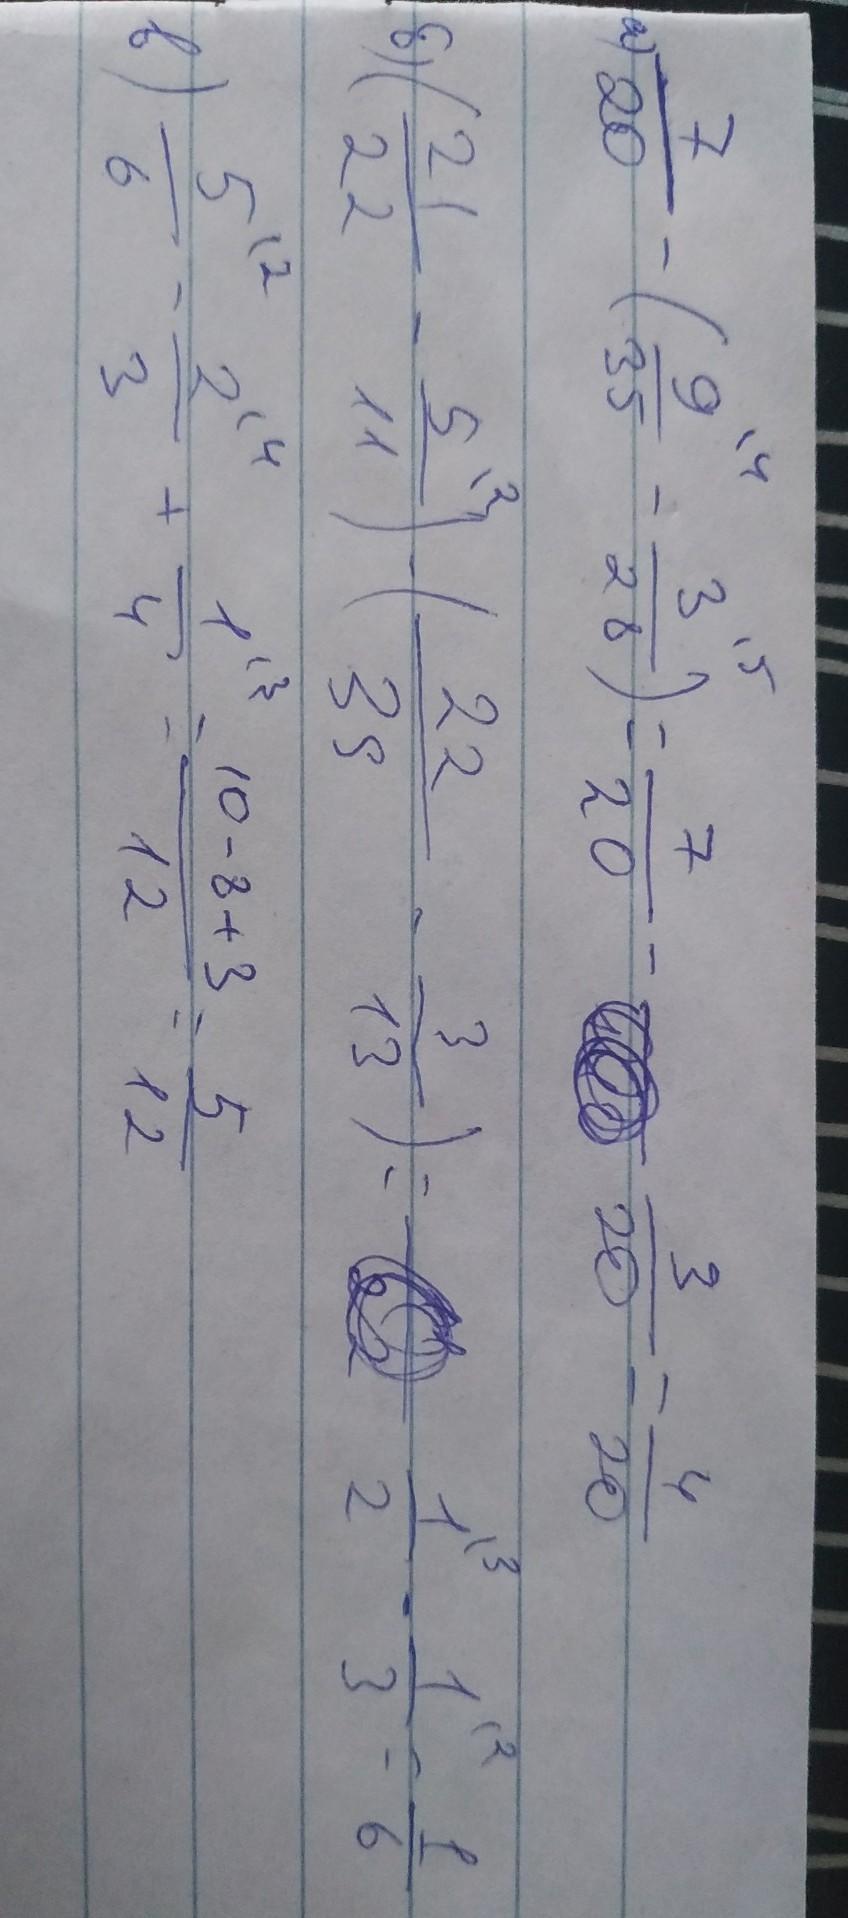 а) 7/20 - (9/35 \4 - 3/28 \5) = 7/20 - 3/20 = 4/20
б) (21/22 - 5/11 \2) - (22/39 - 3/13) = 1/2 \3 - 1/3 \2 = 1/6
в) 5/6 \2 - 2/3 \4 + 1/4 \3 = 10-8+3/12 = 5/12